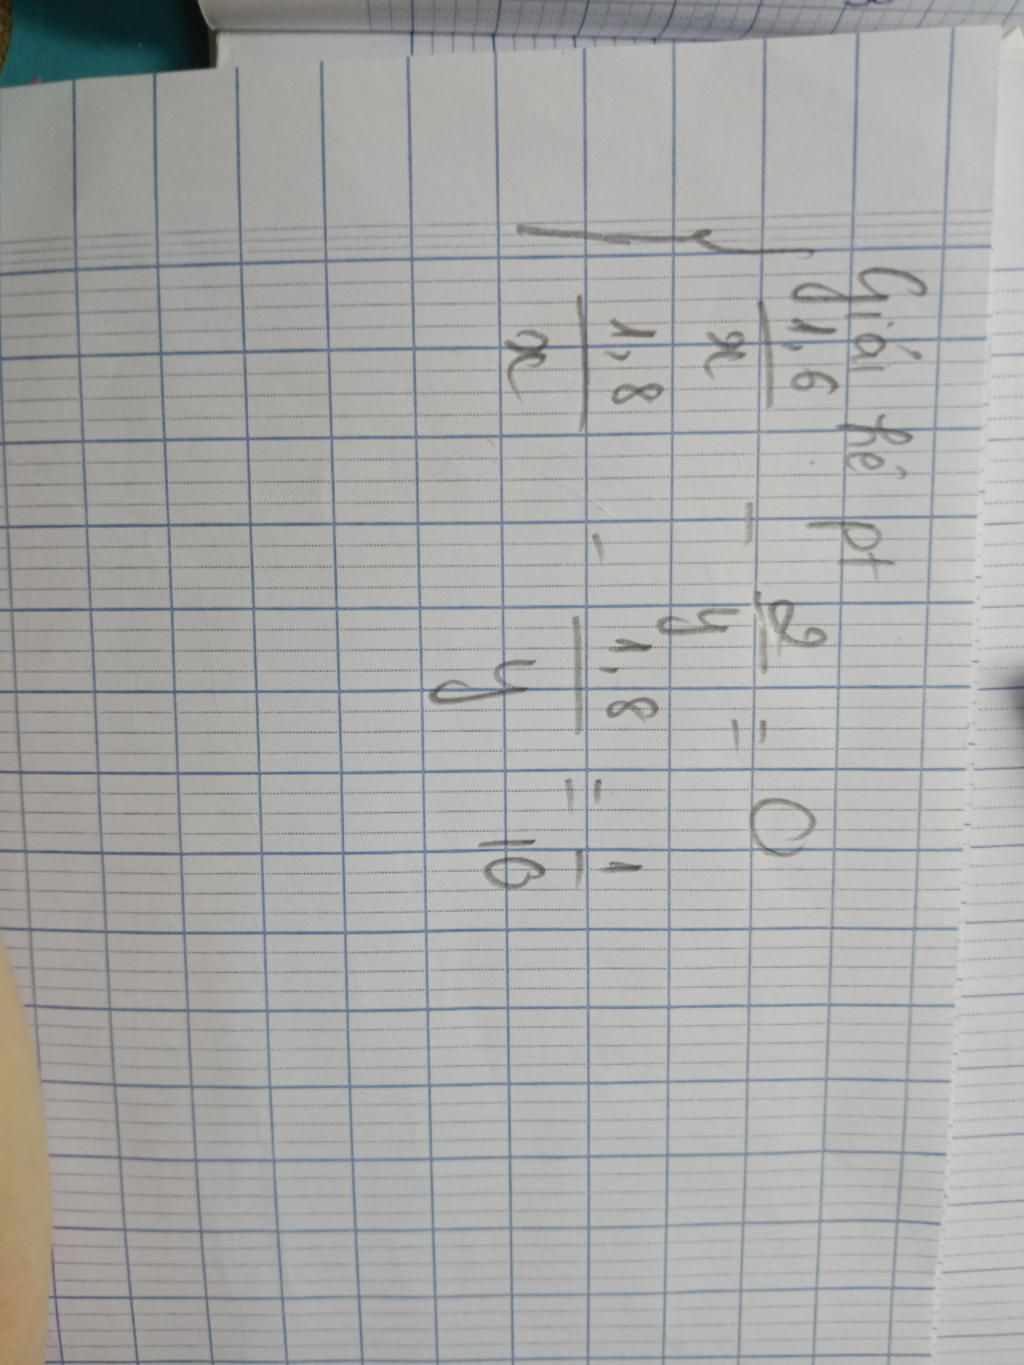 Giải hệ pt
{ 1,6/x - 2/y = 0
1,8/x - 1,8/y = 1/10